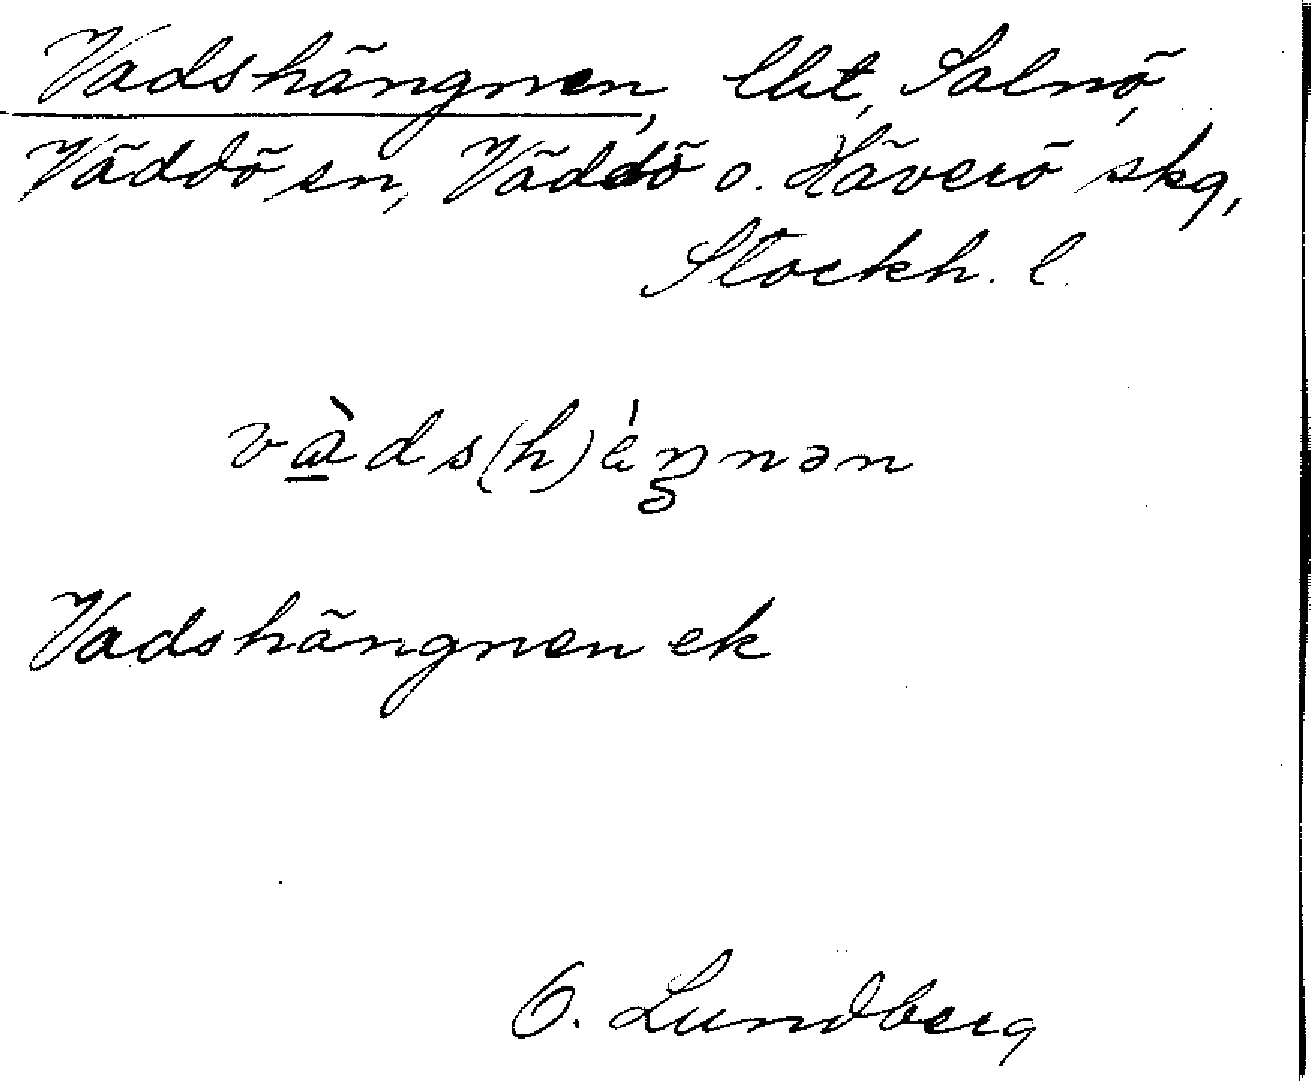 Vadshängnen, lht, Salnö,
Väddö sn, Väddö o. Häverö skg,
Stockh. l.
Vadshängnen ek
O. Lundberg